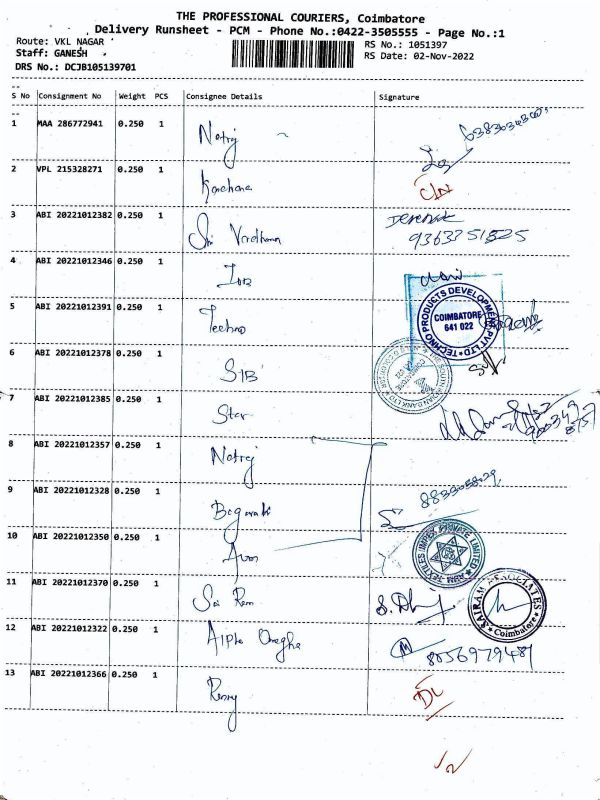 THE PROFESSIONAL COURIERS, Coimbatore
Delivery Runsheet - PCM - Phone No.:0422-3505555 - Page No.:1
Route: VKL NAGAR
Staff: GANESH
DRS No.: DCJB105139701
RS No.: 1051397
RS Date: 02-Nov-2022
S No Consignment No Weight PCS Consignee Details Signature
1 MAA 286772941 0.250 1 Natraj
2 VPL 215328271 0.250 1 Kanchana
3 ABI 20221012382 0.250 1 Sri Vardhana 9363351525
4 ABI 20221012346 0.250 1 IOB
5 ABI 20221012391 0.250 1 Techno
TECHNO PRODUCTS DEVELOPMENT PVT LTD
COIMBATORE
641 022
6 ABI 20221012378 0.250 1 SIB
7 ABI 20221012385 0.250 1 Star
8 ABI 20221012357 0.250 1 Natraj
9 ABI 20221012328 0.250 1
10 ABI 20221012350 0.250 1
TEXTILES IMPEX PRIVATE LIMITED
11 ABI 20221012370 0.250 1 Sai Ram
SAIRAM ASSOCIATES
Coimbatore
12 ABI 20221012322 0.250 1 Alpha Omega 8056979481
13 ABI 20221012366 0.250 1 DL